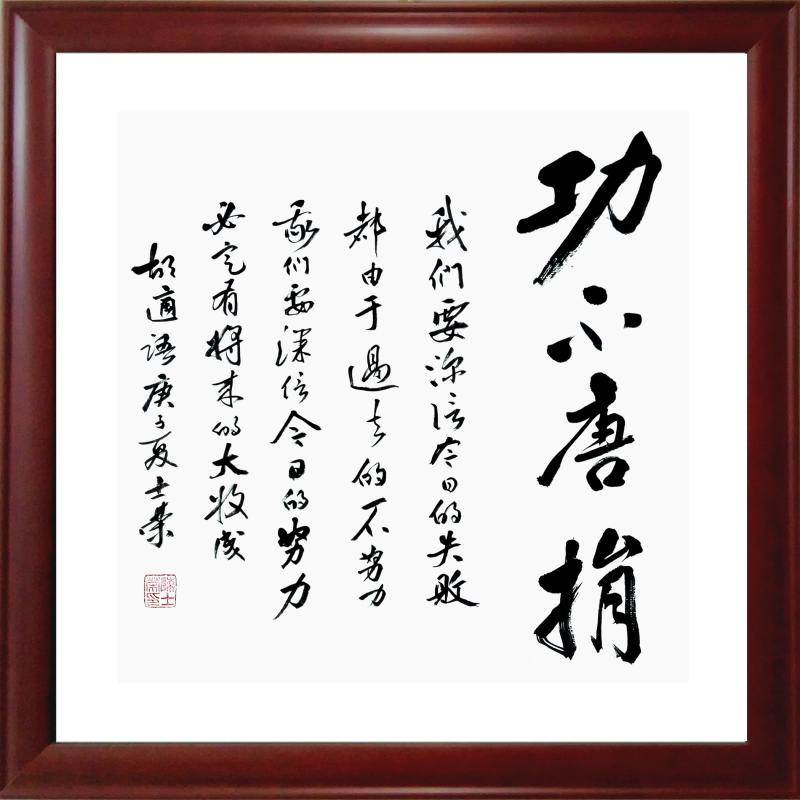 功不唐捐
我们要深信今日的失败
都由于過去的不努力
我们要深信今日的努力
必定有將来的大收成
胡適語庚子夏士榮
陈士榮印